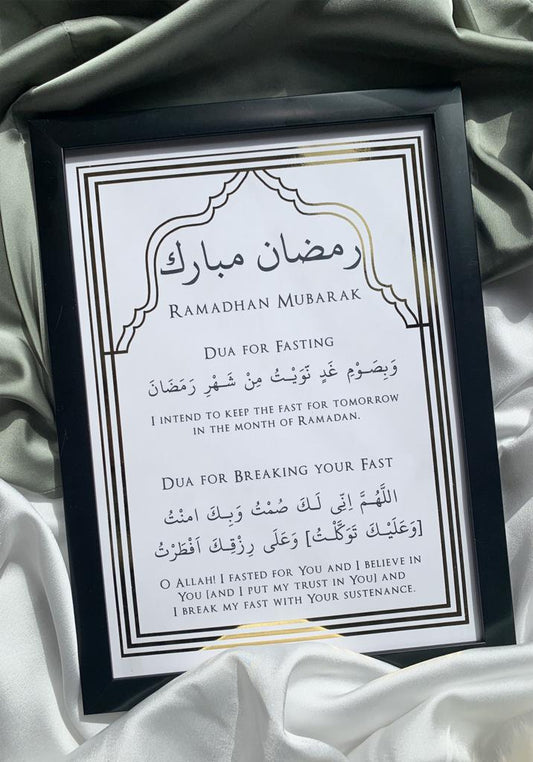 رمضان مبارك
RAMADHAN MUBARAK
DUA FOR FASTING
وَبِصَوْمِ غَدٍ نَوَيْتُ مِنْ شَهْرِ رَمَضَانَ
I INTEND TO KEEP THE FAST FOR TOMORROW
IN THE MONTH OF RAMADAN.
DUA FOR BREAKING YOUR FAST
اللَّهُمَّ اِنِّى لَكَ صُمْتُ وَبِكَ امنْتُ
[وَعَلَيْكَ تَوَكَّلْتُ] وَعَلَى رِزْقِكَ اَفْطَرْتُ
O ALLAH! I FASTED FOR YOU AND I BELIEVE IN
YOU [AND I PUT MY TRUST IN YOU] AND
I BREAK MY FAST WITH YOUR SUSTENANCE.